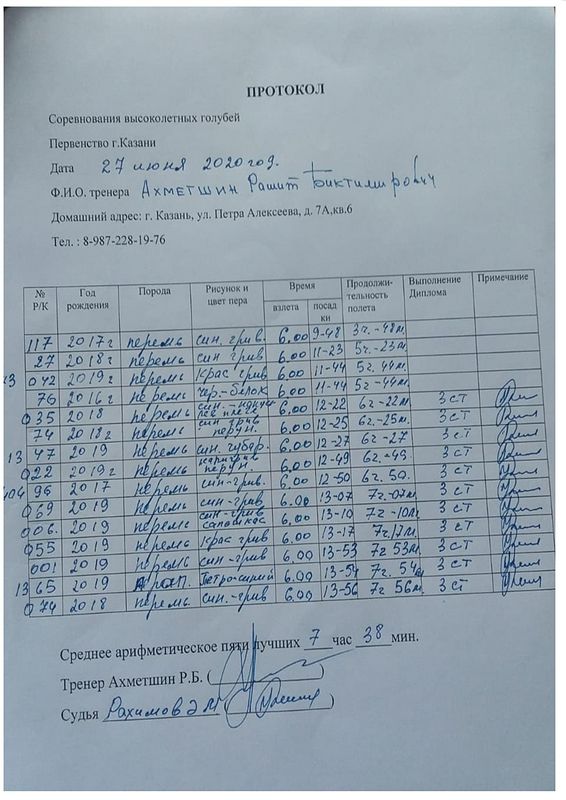 ПРОТОКОЛ
Соревнования высоколетных голубей
Первенство г.Казани
Дата 27 июня 2020год.
Ф.И.О. тренера Ахметшин Рашит Биктимирович
Домашний адрес: г. Казань, ул. Петра Алексеева, д. 7А,кв.6
Тел. : 8-987-228-19-76
№ Р/К Год рождения Порода Рисунок и цвет пера Время взлета посадки Продолжи-тельность полета Выполнение Диплома Примечание
117 2017г пермь син. грив. 6.00 9-48 3ч.-48м.
27 2018г пермь син грив 6.00 11-23 5ч.-23м.
042 2019г пермь крас грив 6.00 11-44 5ч. 44м.
76 2016г пермь чер.-белок 6.00 11-44 5ч-44м.
035 2018 пермь син. 6.00 12-22 6ч-22м. 3 ст
74 2018г пермь син грив 6.00 12-25 6ч.-25м. 3 ст
13 47 2019 пермь син. 6.00 12-27 6ч-27 3 ст
022 2019г пермь 6.00 12-49 6ч.-49. 3 ст
96 2017 пермь син-грив. 6.00 12-50 6ч. 50. 3 ст
069 2019 пермь син-грив 6.00 13-07 7ч-07м. 3 ст
006. 2019 пермь син-грив 6.00 13-10 7ч-10м. 3 ст
055 2019 пермь крас грив 6.00 13-17 7ч.17м. 3 ст
001 2019 пермь син-грив 6.00 13-53 7ч 53м. 3 ст
13 65 2019 6.00 13-54 7ч. 54м. 3 ст
074 2018 пермь. син.-грив 6.00 13-56 7ч 56м. 3 ст
Среднее арифметическое пяти лучших 7 час 38 мин.
Тренер Ахметшин Р.Б. ( )
Судья Рахимов Э М ( )